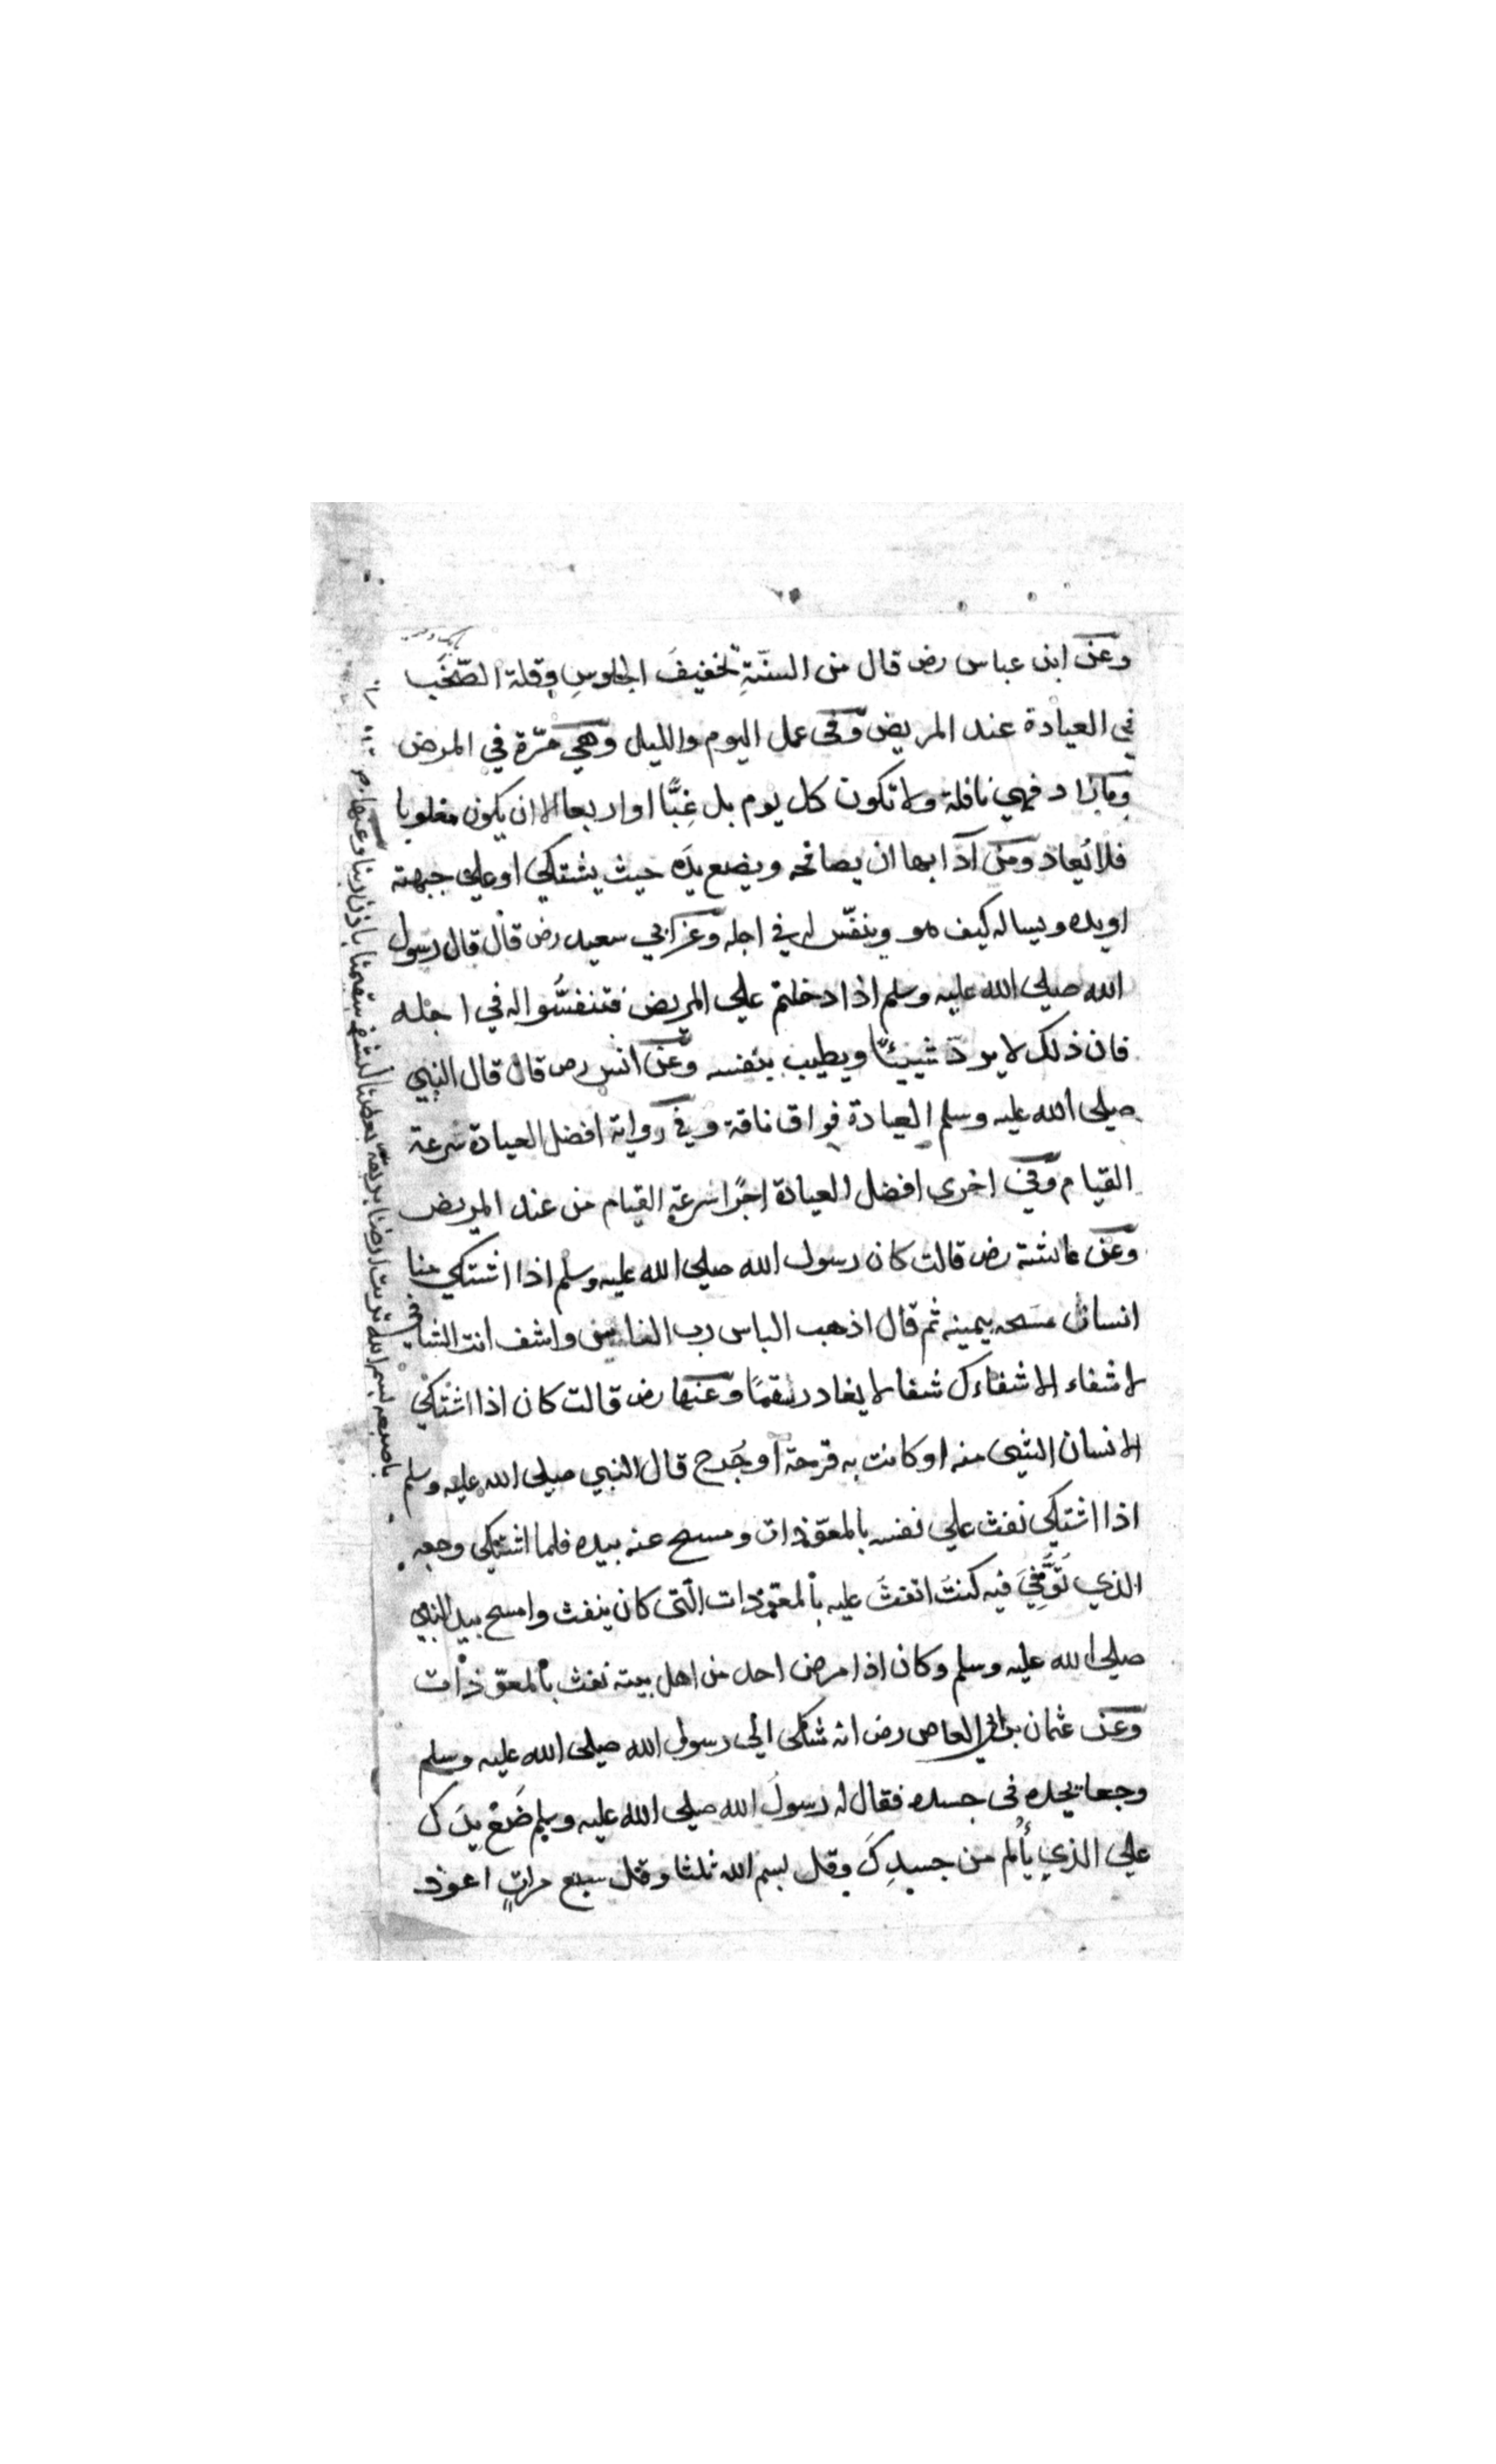 وعن ابن عباس رض قال من السنّةِ تخفيفَ الجلوسِ وقلة الصّخَب
في العيادة عند المريض وفى عمل اليوم والليل وهي مرّة في المرض
وما زاد فهي نافلة ولا تكون كل يوم بل غِبًّا او اربعا الا ان يكون مغلوبا
فلا يُعاد ومن آدابها ان يصافحه ويضع يَده حيث يشتكي او علي جبهته
او يده ويساله كيف هو وينفّس له في اجله وعن ابي سعيد رض قال قال رسول
الله صلى الله عليه وسلم اذا دخلتم علي المريض فتنفسُّوا له في اجله
فان ذلك لا يردّ شيئًا ويطيب بنفسه وعن انس رض قال قال النبي
صلى الله عليه وسلم العيادة فواق ناقة وفي رواية افضل العيادة سرعة
القيام وفي اخرى افضل العيادة اجرًا سرعة القيام من عند المريض
وعن عائشة رض قالت كان رسول الله صلى الله عليه وسلم اذا اشتكي منا
انسان مسحه بيمينه ثم قال اذهب الباس رب الناس واشف انت الشافي
لا شفاء الا شفاءك شفا لا يغادر سقمًا وعنها رض قالت كان اذا اشتكي
الانسان الشيى منه او كانت به قرحة او جُرح قال النبي صلى الله عليه وسلم
اذا اشتكي نفث علي نفسه بالمعوّذات ومسح عنه بيده فلما اشتكى وجعه
الذي تُوُفِّيَ فيه كنتُ انفثُ عليه بالمعوّذات الّتى كان ينفث وامسح بيد النبي
صلى الله عليه وسلم وكان اذا مرض احد من اهل بيته نفث بالمعوّذات
وعن عثمان بن ابي العاص رض انه شكى الي رسول الله صلى الله عليه وسلم
وجعا يجده في جسده فقال له رسولُ الله صلى الله عليه وسلم ضَعْ يدَك
علي الذي يألم من جسدِكَ وقل بسم الله ثلثا وقل سبع مراتٍ اعوذ
باصبعه بسم الله تربت ارضنا بريقة بعضنا ليشفى سقيمنا باذن ربنا وعنها رض